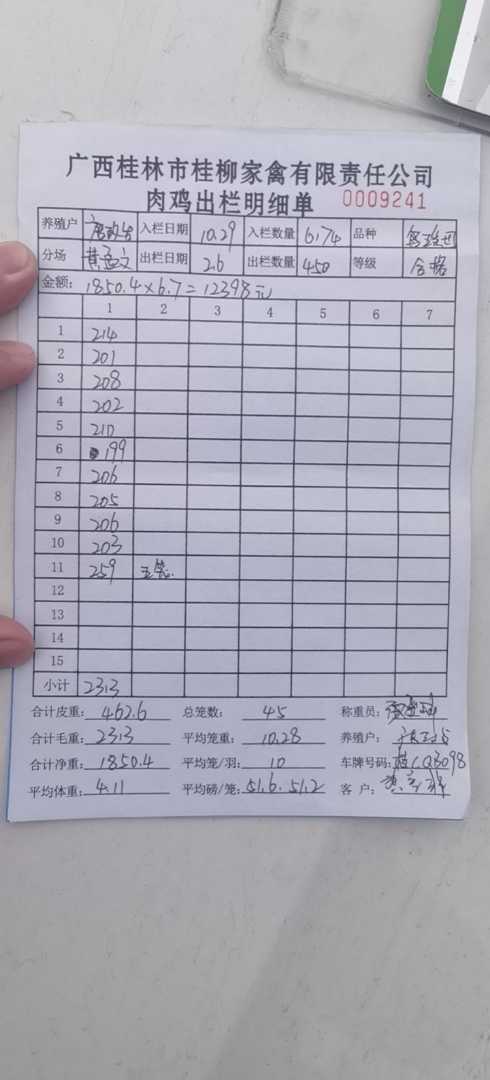 广西桂林市桂柳家禽有限责任公司
肉鸡出栏明细单 0009241
养殖户 入栏日期 10.29 入栏数量 6174 品种
分场 出栏日期 2.6 出栏数量 450 等级 合格
金额: 1850.4×6.7=12398元
1 2 3 4 5 6 7
1 214
2 201
3 208
4 202
5 210
6 199
7 206
8 205
9 206
10 203
11 259 五笼
12
13
14
15
小计 2313
合计皮重: 462.6 总笼数: 45 称重员:
合计毛重: 2313 平均笼重: 10.28 养殖户:
合计净重: 1850.4 平均笼/羽: 10 车牌号码: 桂CQB098
平均体重: 4.11 平均磅/笼: 51.6. 51.2 客户: